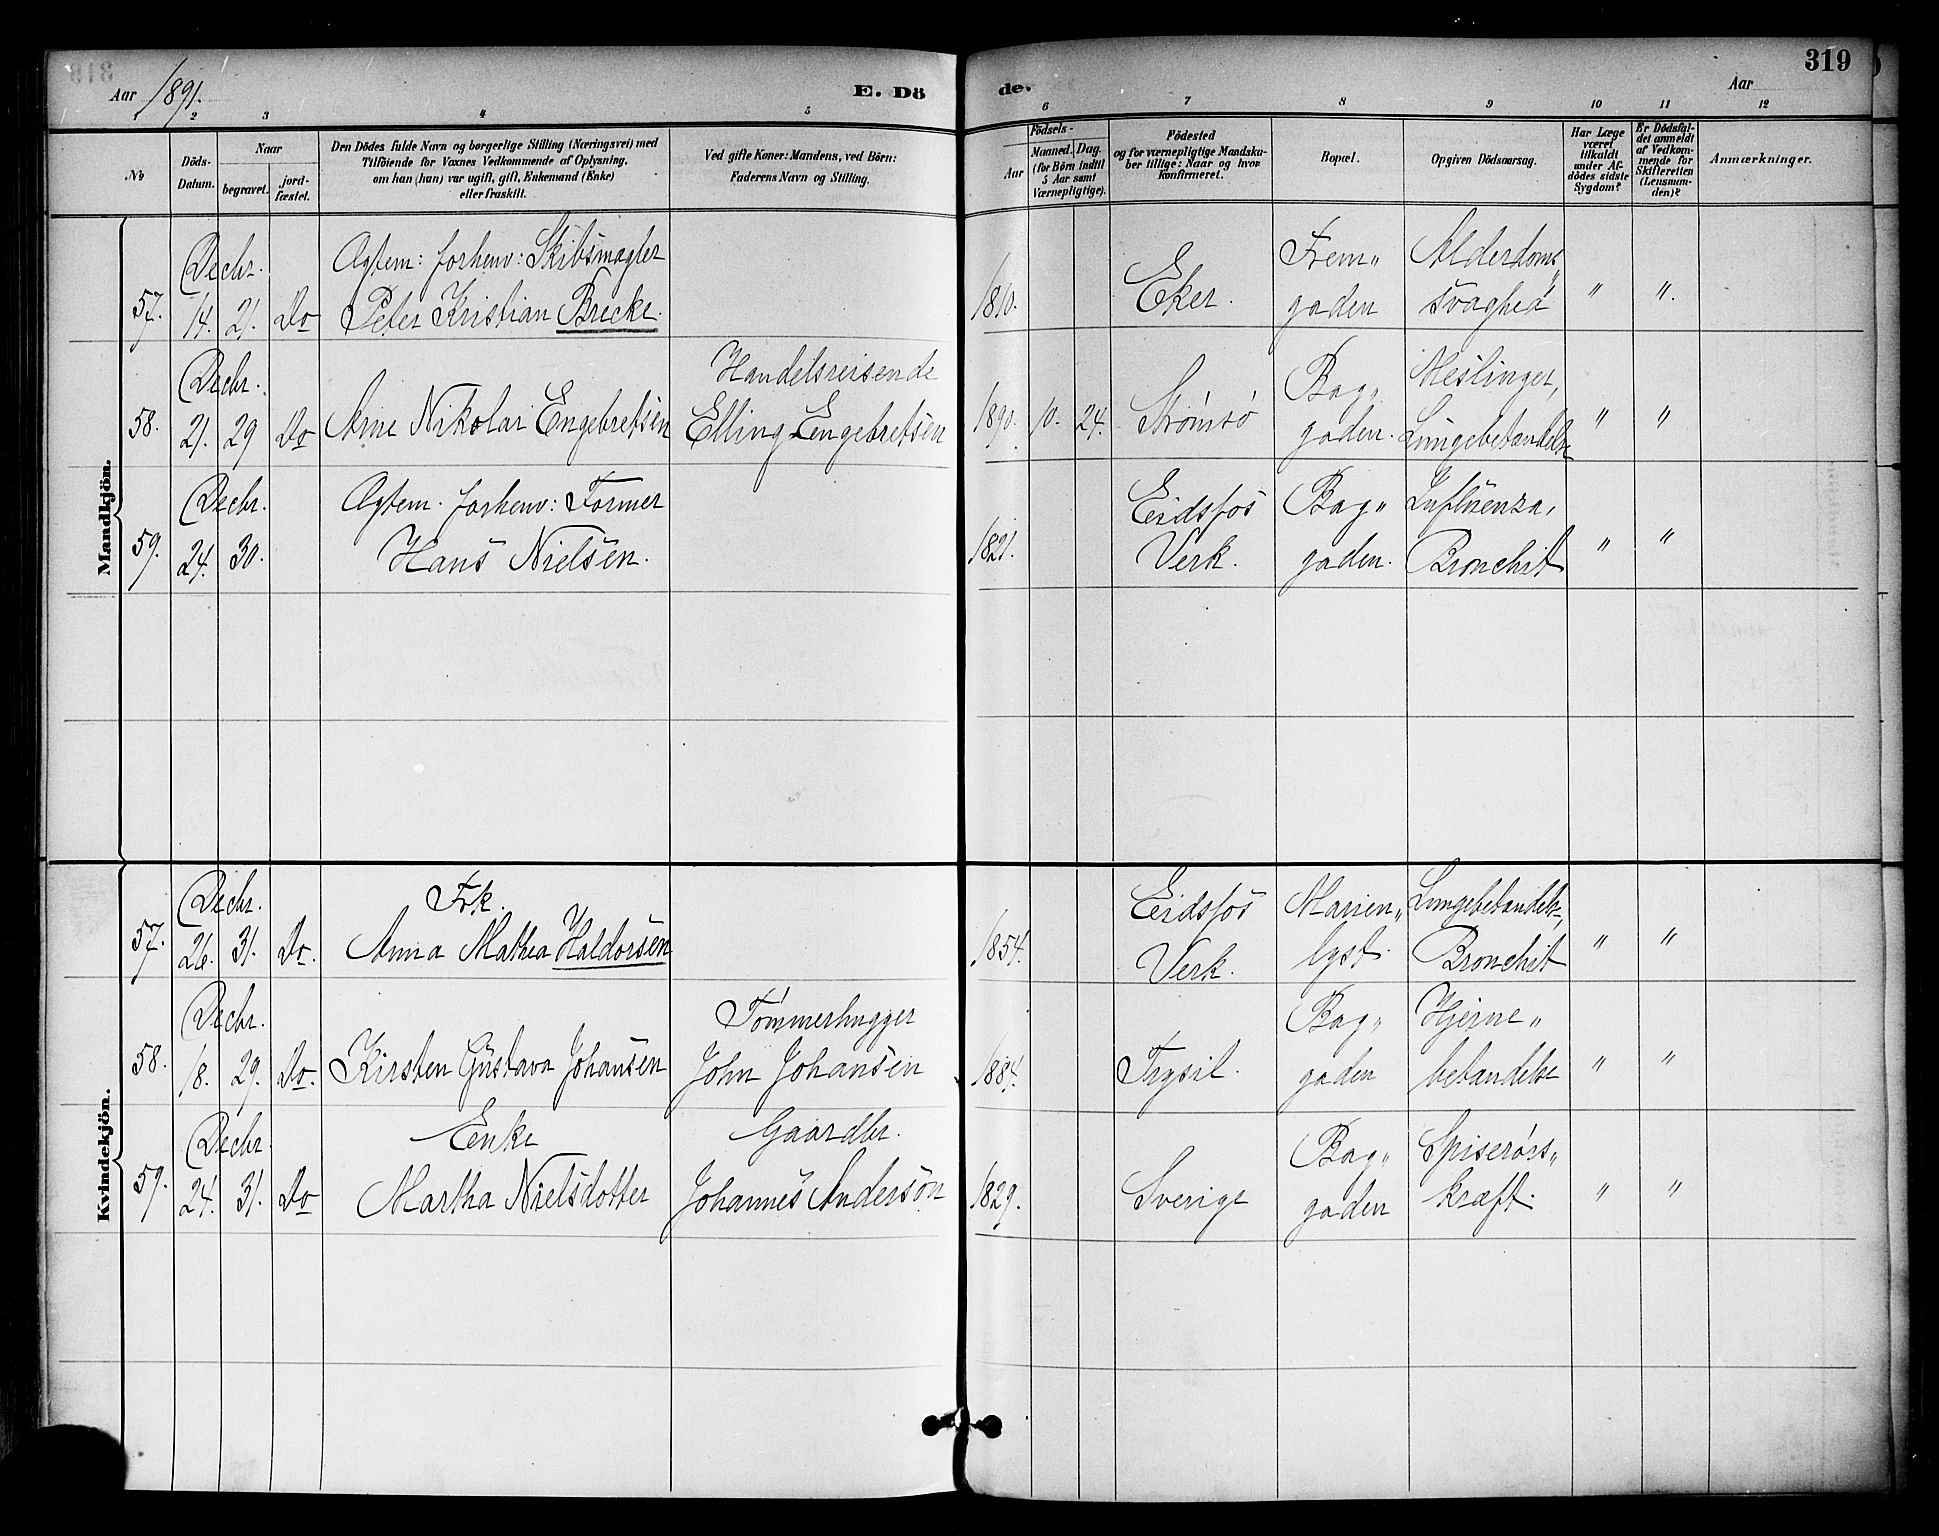 Aar 1891. E. Dö de. Aar 319
1 2 3 4 5 6 7 8 9 10 11 12
№
Döds-Datum.
Naar
begravet.
jord-fæstet.
Den Dödes fulde Navn og borgerlige Stilling (Næringsvei) med
Tilföiende for Voxnes Vedkommende af Oplysning,
om han (hun) var ugift, gift, Enkemand (Enke)
eller fraskilt.
Ved gifte Koner: Mandens, ved Börn:
Faderens Navn og Stilling.
Födsels-
Aar
Maaned. Dag.
(for Börn indtil
5 Aar samt
Værnepligtige).
Födested
og for værnepligtige Mandsku-
ber tillige: Naar og hvor
konfirmeret.
Bopæl.
Opgiven Dödsaarsag.
Har Læge
været
tilkaldt
under Af-
dödes sidste
Sygdom?
Er Dödsfal-
det anmeldt
af Vedkom-
mende for
Skifteretten
(Lensman-
den)?
Anmærkninger.
Mandkjön.
Decbr. Agtem: forhenv: Skibsmægler Frem„ Alderdoms„
57. 14. 21. Do Peter Kristian Brecke. 1810. Eker. gaden svaghed " ".
Decbr. Handelsreisende Bag„ Meslinger,
58. 21. 29 Do Arne Nikolai Engebretsen Elling Engebretsen 1890. 10. 24. Strømsö gaden. Lungebetændelse " "
Decbr. Agtem. forhenv: Former Eidsfos Bag„ Influenza,
59. 24. 30. Hans Nielsen. 1821. Verk. gaden. Bronchit " "
Kvindekjön.
Decbr. Frk. Eidsfos Marien„ Lungebetændelse,
57. 26. 31. Do. Anna Mathea Haldorsen 1854. Verk. lyst. Bronchit " "
Decbr. Tømmerhugger Bag„ Hjerne„
58. 18. 29. Do. Kirsten Gustava Johansen John Johansen 1884. Trysil. gaden betændelse " "
Decbr. Enke Gaardbr. Bag„ Spiserørs„
59. 24. 31. Do Martha Nielsdotter Johannes Anderson 1829. Sverige gaden kræft. " "